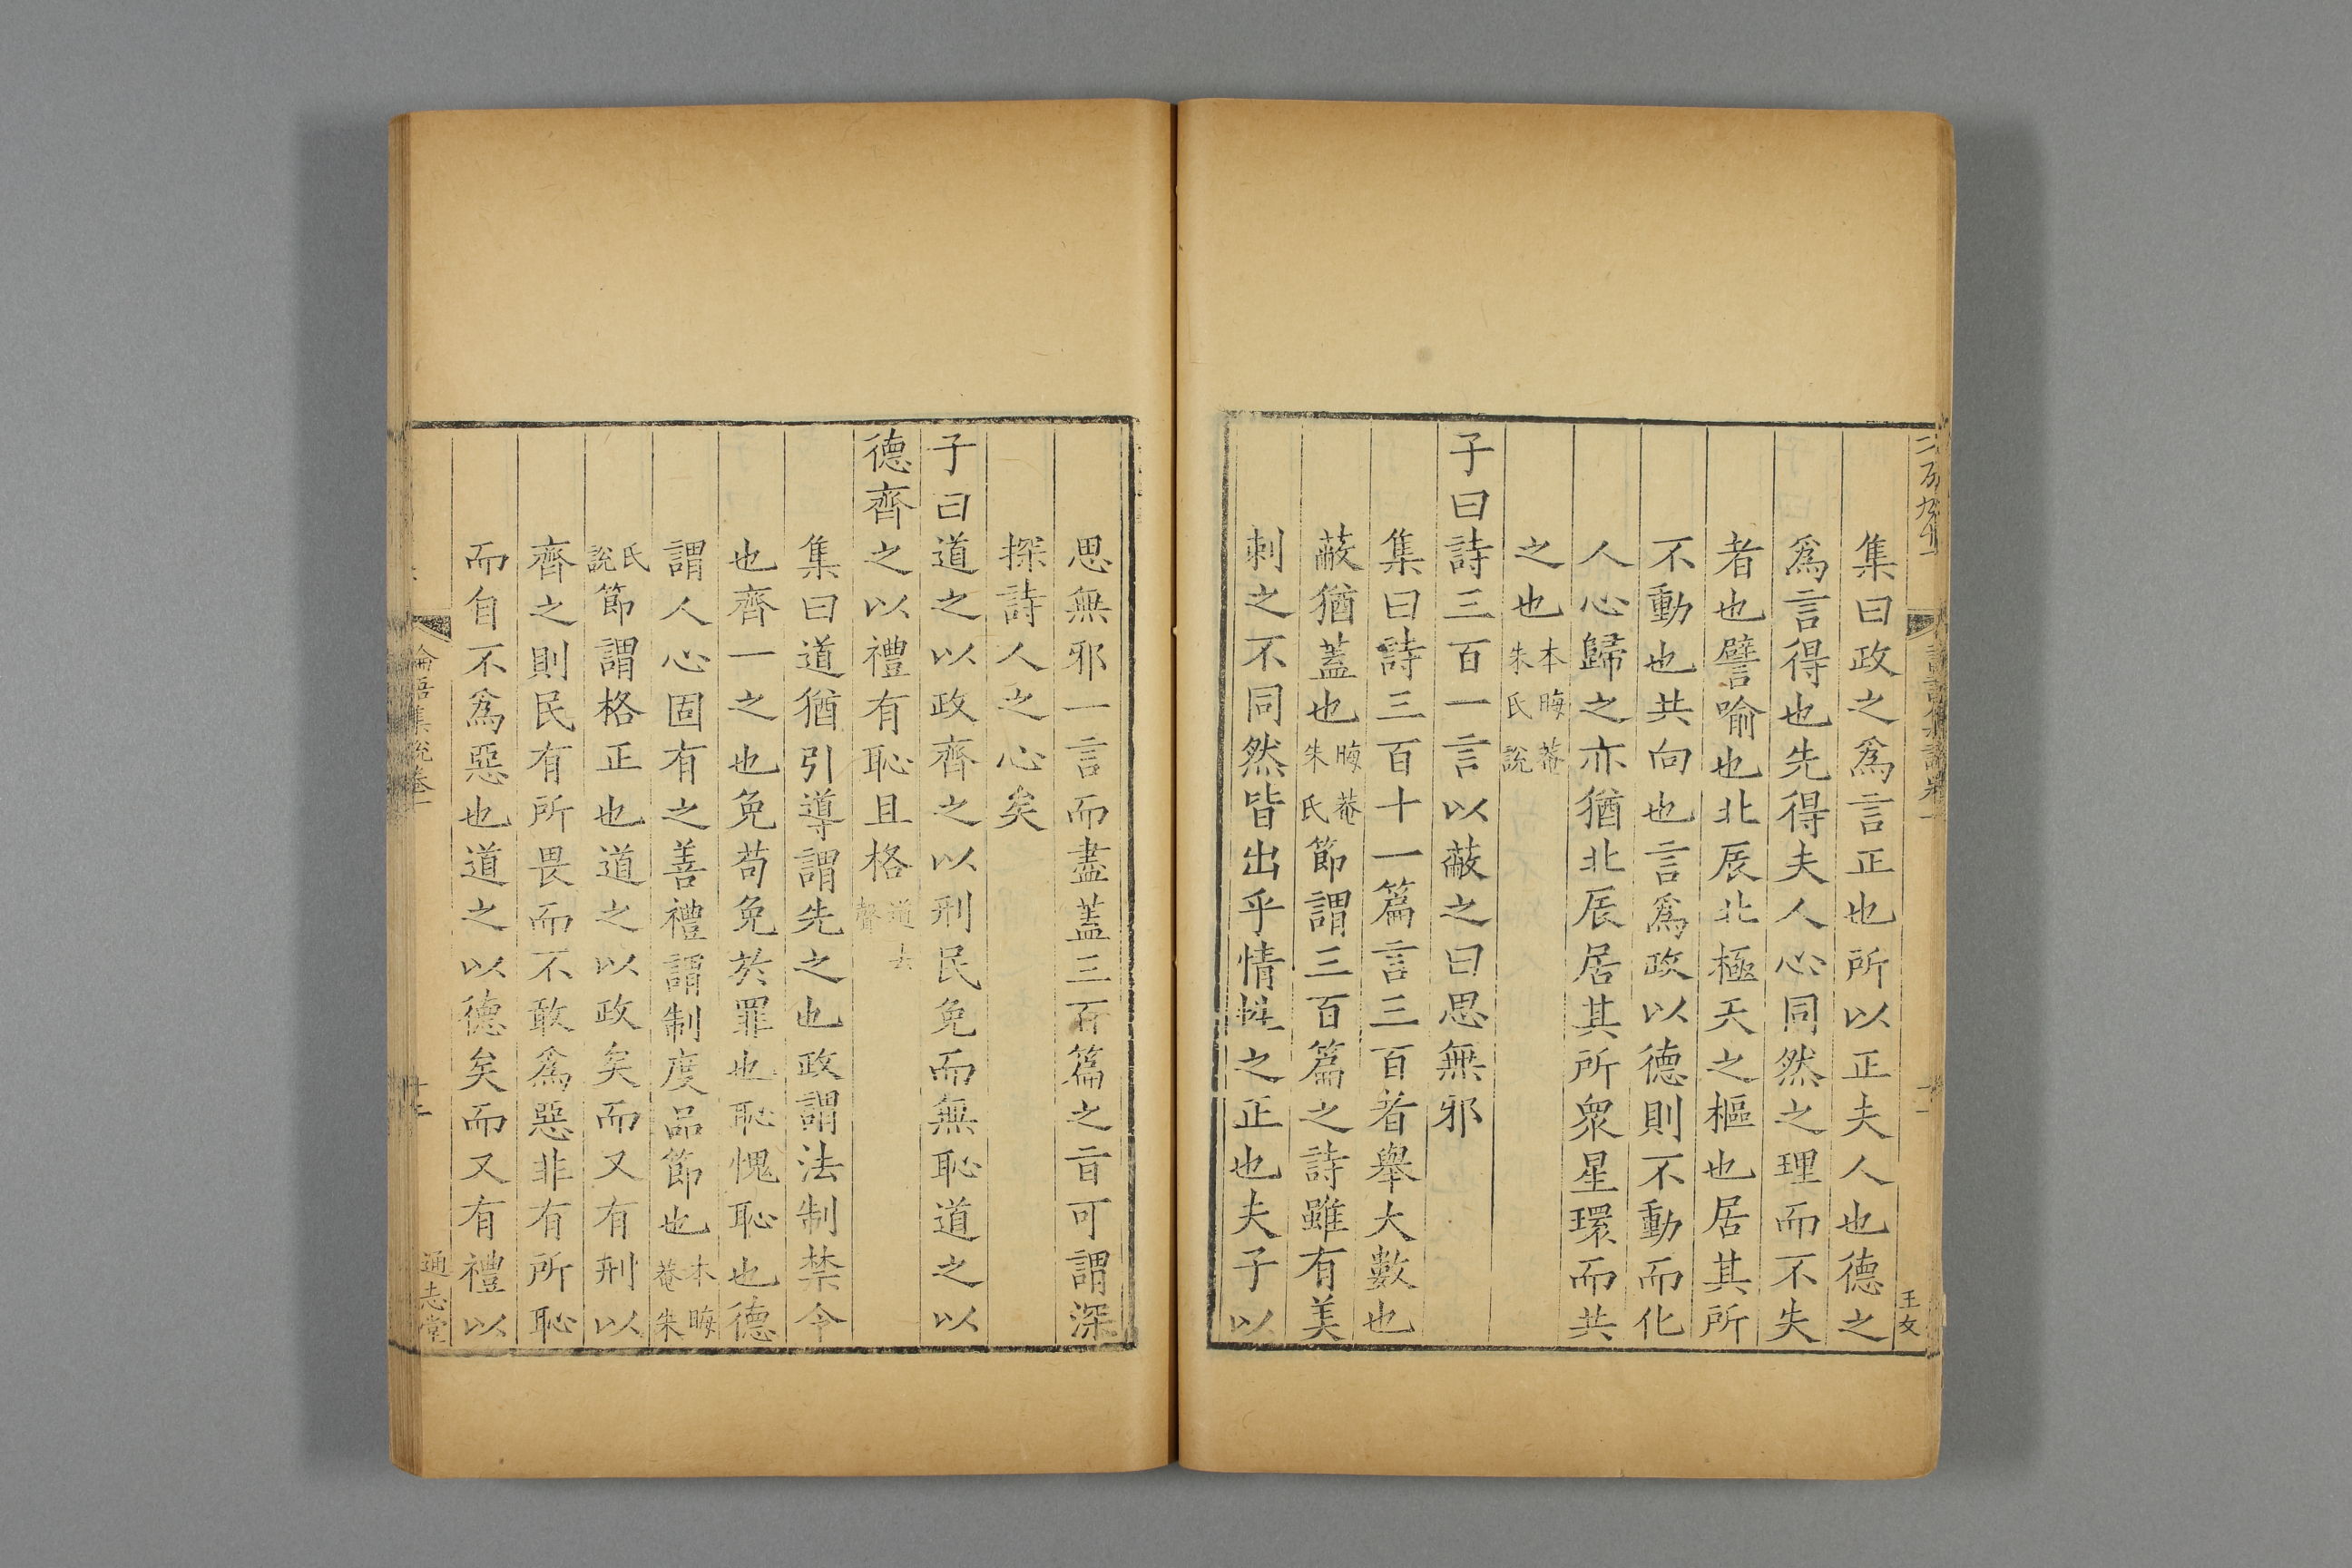 集曰政之爲言正也所以正夫人也德之
爲言得也先得夫人心同然之理而不失
者也譬喻也北辰北極天之樞也居其所
不動也共向也言爲政以德則不動而化
人心歸之亦猶北辰居其所衆星環而共
之也本晦菴朱氏說
子曰詩三百一言以蔽之曰思無邪
集曰詩三百十一篇言三百者舉大數也
蔽猶蓋也晦菴朱氏節謂三百篇之詩雖有美
刺之不同然皆出乎情性之正也夫子以
王文
思無邪一言而盡蓋三百篇之旨可謂深
探詩人之心矣
子曰道之以政齊之以刑民免而無恥道之以
德齊之以禮有恥且格道去聲
集曰道猶引導謂先之也政謂法制禁令
也齊一之也免苟免於罪也恥愧恥也德
謂人心固有之善禮謂制度品節也本晦菴朱
氏說節謂格正也道之以政矣而又有刑以
齊之則民有所畏而不敢爲惡非有所恥
而自不爲惡也道之以德矣而又有禮以
論語集說卷一
十二
通志堂